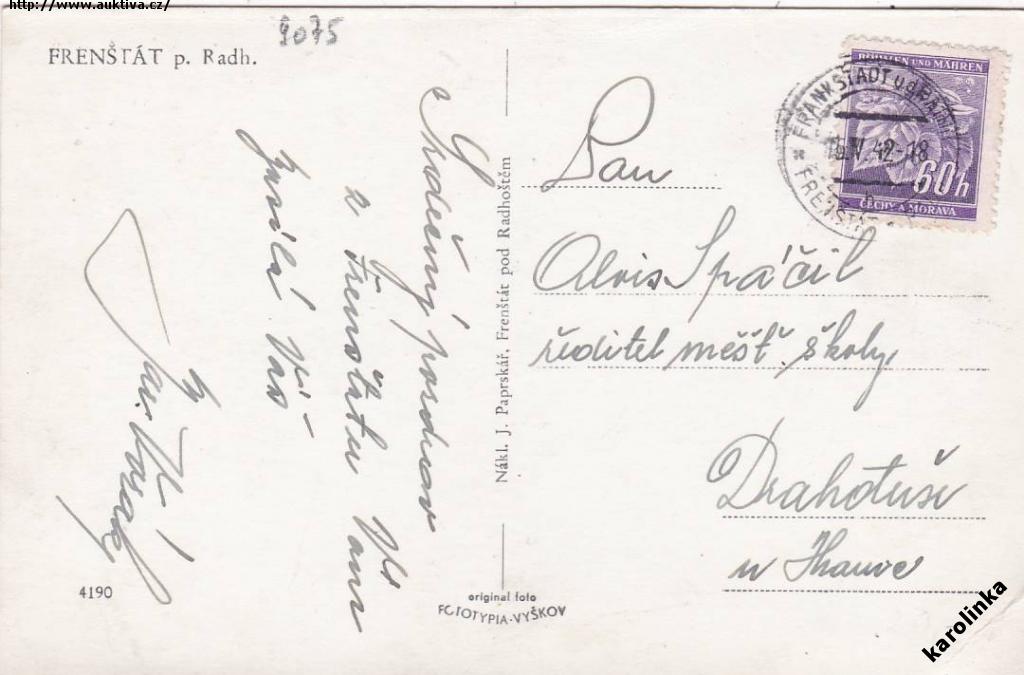 http://www.auktiva.cz/
9075
FRENŠTÁT p. Radh.
Srdečný pozdrav
z Frenštátu Vám
zasílá Váš
Nákl. J. Paprskář, Frenštát pod Radhoštěm
4190
original foto
FOTOTYPIA-VYŠKOV
BÖHMEN UND MÄHREN
60h
ČECHY A MORAVA
FRANKSTADT u. d. RADH.
42-18
FRENŠTÁT
Pan
Alois Spáčil
ředitel měšť. školy
Drahotuše
u Hranic
karolinka